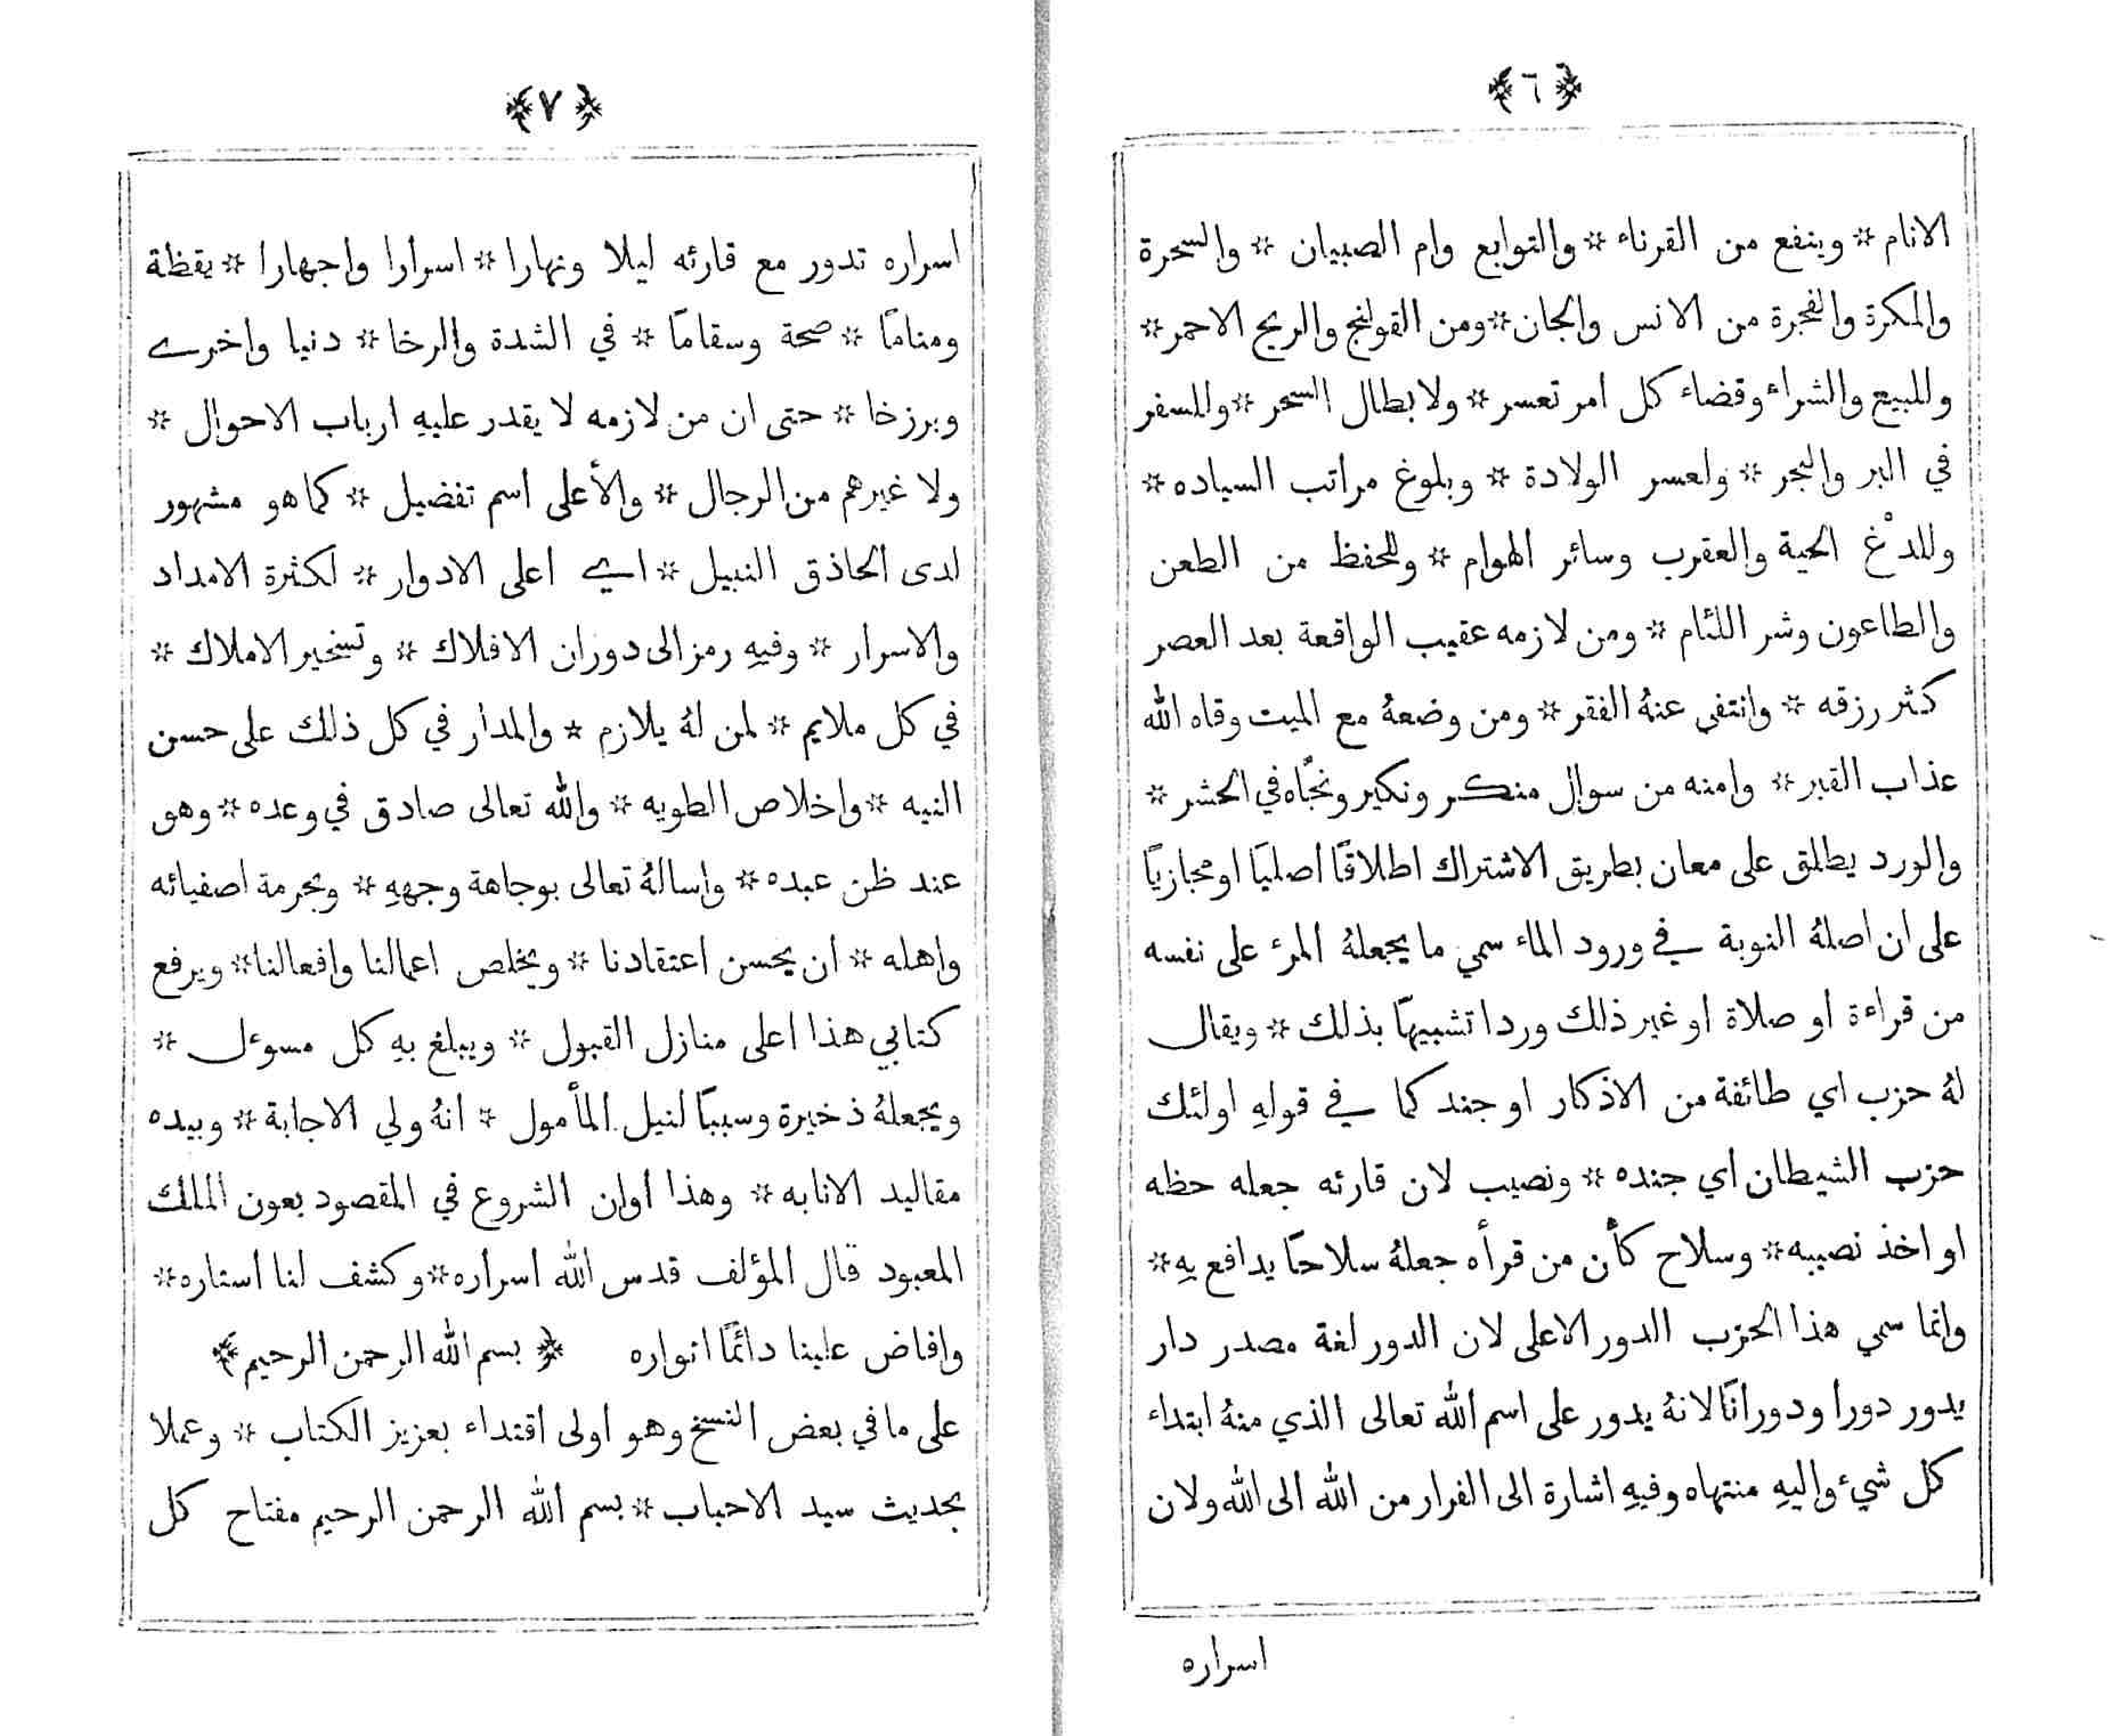 ﴿٦﴾
الانام * وينفع من القرناء * والتوابع وام الصبيان * والسحرة
والمكرة والفجرة من الانس والجان * ومن القولنج والريح الاحمر *
وللبيع والشراء وقضاء كل امر تعسر * ولابطال السحر * وللسفر
في البر والبحر * ولعسر الولادة * وبلوغ مراتب السياده *
وللدْغ الحية والعقرب وسائر الهوام * وللحفظ من الطعن
والطاعون وشر اللئام * ومن لازمه عقيب الواقعة بعد العصر
كثر رزقه * وانتفى عنهُ الفقر * ومن وضعهُ مع الميت وقاه الله
عذاب القبر * وامنه من سوال منكر ونكير ونجَّاه في الحشر *
والورد يطلق على معان بطريق الاشتراك اطلاقًا اصليًا او مجازيًا
على ان اصلهُ النوبة في ورود الماء سمي ما يجعلهُ المرء على نفسه
من قراءة او صلاة او غير ذلك وردا تشبيهًا بذلك * ويقال
لهُ حزب اي طائفة من الاذكار او جند كما في قولهِ اولئك
حزب الشيطان اي جنده * ونصيب لان قارئه جعله حظه
او اخذ نصيبه * وسلاح كأن من قرأه جعلهُ سلاحًا يدافع بهِ *
وانما سمي هذا الحزب الدور الاعلى لان الدور لغة مصدر دار
يدور دورا ودورانًا لانهُ يدور على اسم الله تعالى الذي منهُ ابتداء
كل شيء واليهِ منتهاه وفيهِ اشارة الى الفرار من الله الى الله ولان
اسراره
﴿٧﴾
اسراره تدور مع قارئه ليلا ونهارا * اسرارا واجهارا * يقظة
ومنامًا * صحة وسقامًا * في الشدة والرخا * دنيا واخرى
وبرزخا * حتى ان من لازمه لا يقدر عليهِ ارباب الاحوال *
ولا غيرهم من الرجال * والأعلى اسم تفضيل * كما هو مشهور
لدى الحاذق النبيل * اي اعلى الادوار * لكثرة الامداد
والاسرار * وفيهِ رمز الى دوران الافلاك * وتسخير الاملاك *
في كل ملايم * لمن لهُ يلازم * والمدار في كل ذلك على حسن
النيه * واخلاص الطويه * والله تعالى صادق في وعده * وهو
عند ظن عبده * واسالهُ تعالى بوجاهة وجههِ * وبحرمة اصفيائه
واهله * ان يحسن اعتقادنا * ويخلص اعمالنا وافعالنا * ويرفع
كتابي هذا اعلى منازل القبول * ويبلغ بهِ كل مسوءل *
ويجعلهُ ذخيرة وسببًا لنيل المأمول * انهُ ولي الاجابة * وبيده
مقاليد الانابه * وهذا اوان الشروع في المقصود بعون الملك
المعبود قال المؤلف قدس الله اسراره * وكشف لنا استاره *
وافاض علينا دائمًا انواره ﴿ بسم الله الرحمن الرحيم ﴾
على ما في بعض النسخ وهو اولى اقتداء بعزيز الكتاب * وعملا
بحديث سيد الاحباب * بسم الله الرحمن الرحيم مفتاح كل